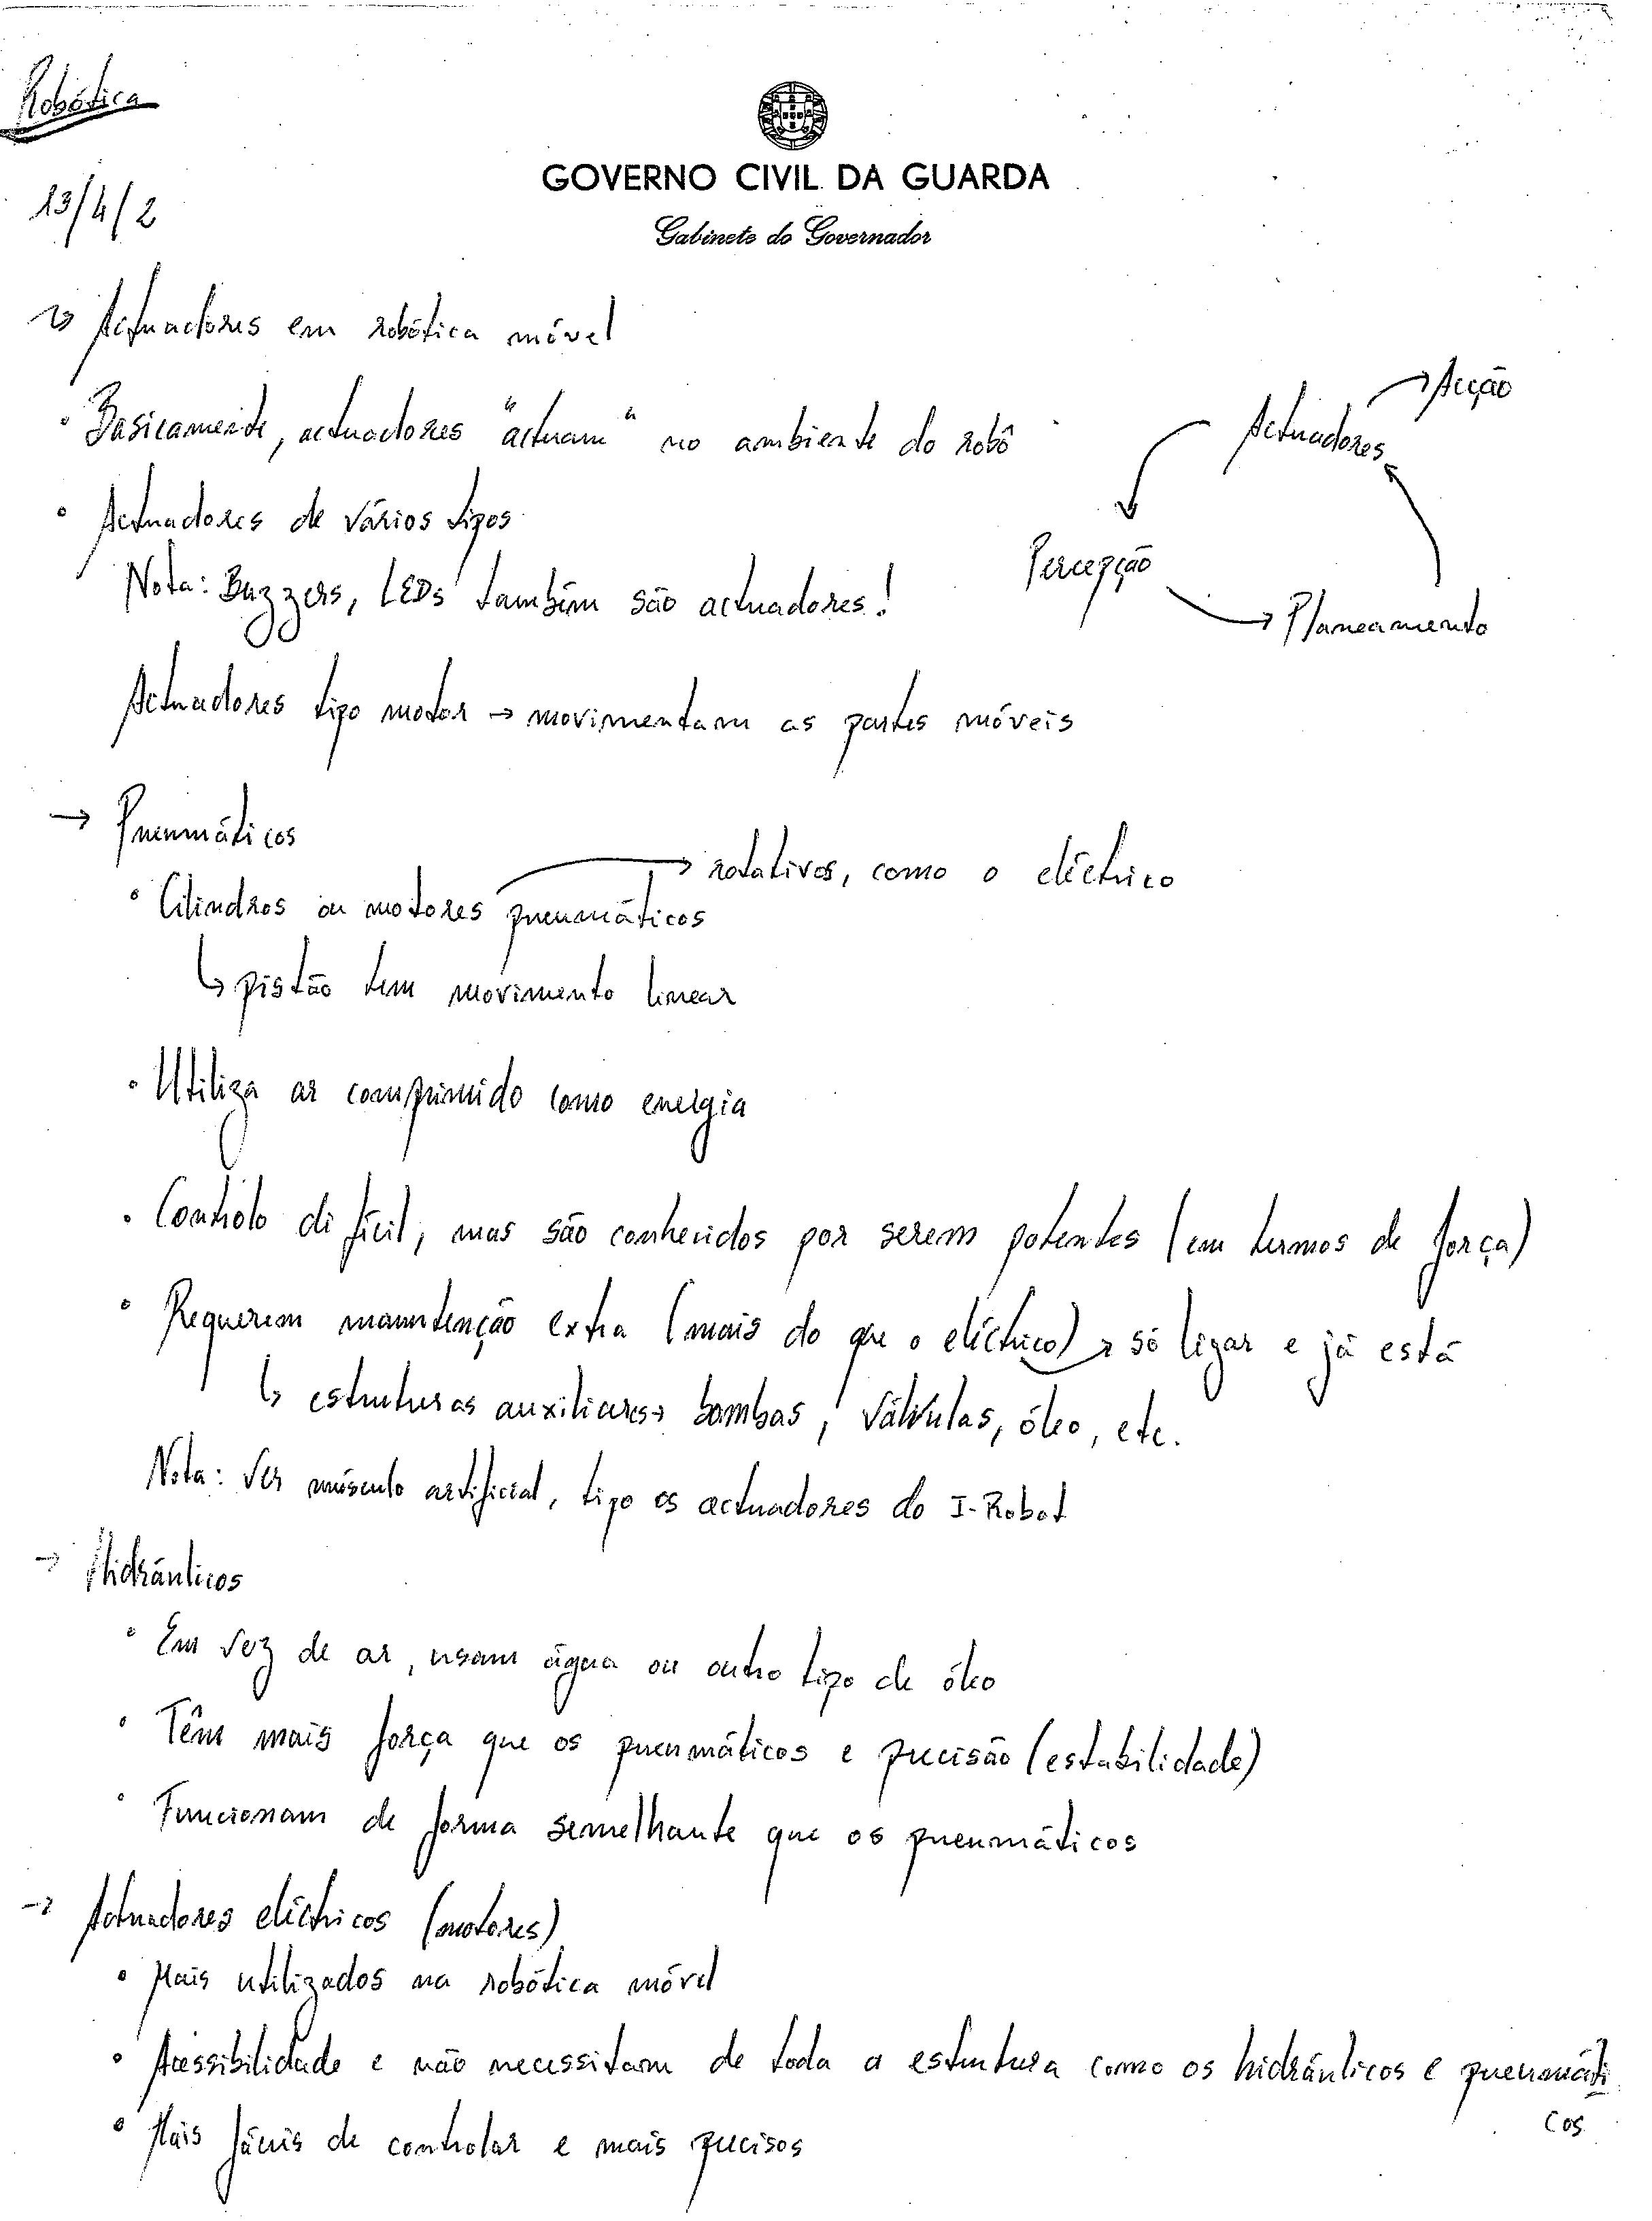 Robótica
GOVERNO CIVIL DA GUARDA
13/4/2
Gabinete do Governador
→ Actuadores em robótica móvel
• Basicamente, actuadores "actuam" no ambiente do robô
Actuadores → Acção
• Actuadores de vários tipos
Percepção
Nota: Buzzers, LEDs também são actuadores!
→ Planeamento
Actuadores tipo motor → movimentam as partes móveis
→ Pneumáticos
→ rotativos, como o eléctrico
• Cilindros ou motores pneumáticos
↳ pistão tem movimento linear
• Utiliza ar comprimido como energia
• Controlo difícil, mas são conhecidos por serem potentes (em termos de força)
• Requerem manutenção extra (mais do que o eléctrico) → só ligar e já está
↳ estruturas auxiliares → bombas, válvulas, óleo, etc.
Nota: Ver músculo artificial, tipo os actuadores do I-Robot
→ Hidráulicos
• Em vez de ar, usam água ou outro tipo de óleo
• Têm mais força que os pneumáticos e precisão (estabilidade)
• Funcionam de forma semelhante que os pneumáticos
→ Actuadores eléctricos (motores)
• Mais utilizados na robótica móvel
• Acessibilidade e não necessitam de toda a estrutura como os hidráulicos e pneumáti
cos
• Mais fáceis de controlar e mais precisos